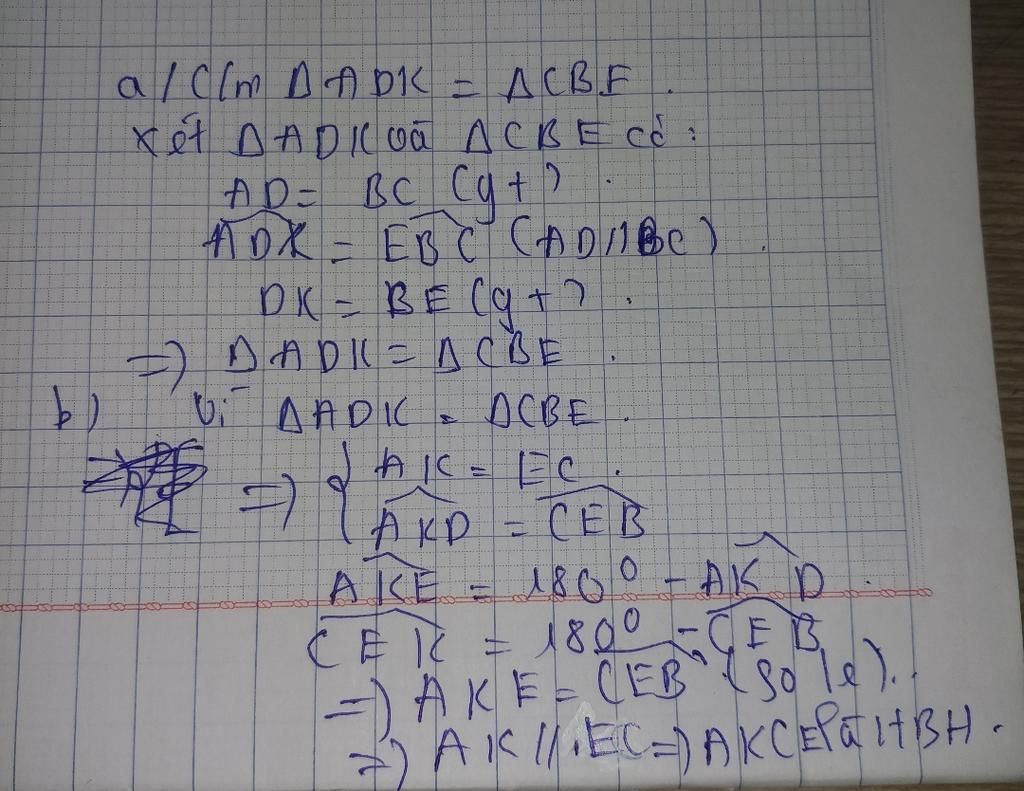 a/ C/m Δ ADK = Δ CBE.
Xét Δ ADK và Δ CBE có:
AD = BC (gt).
ADK = EBC (AD//BC).
DK = BE (gt).
=) Δ ADK = Δ CBE.
b) Vì Δ ADK = Δ CBE.
=) { AK = EC.
AKD = CEB
AKE = 180° - AKD.
CEK = 180° - CEB
=) AKE = CEB (so le)..
=) AK // EC =) AKCE là HBH.